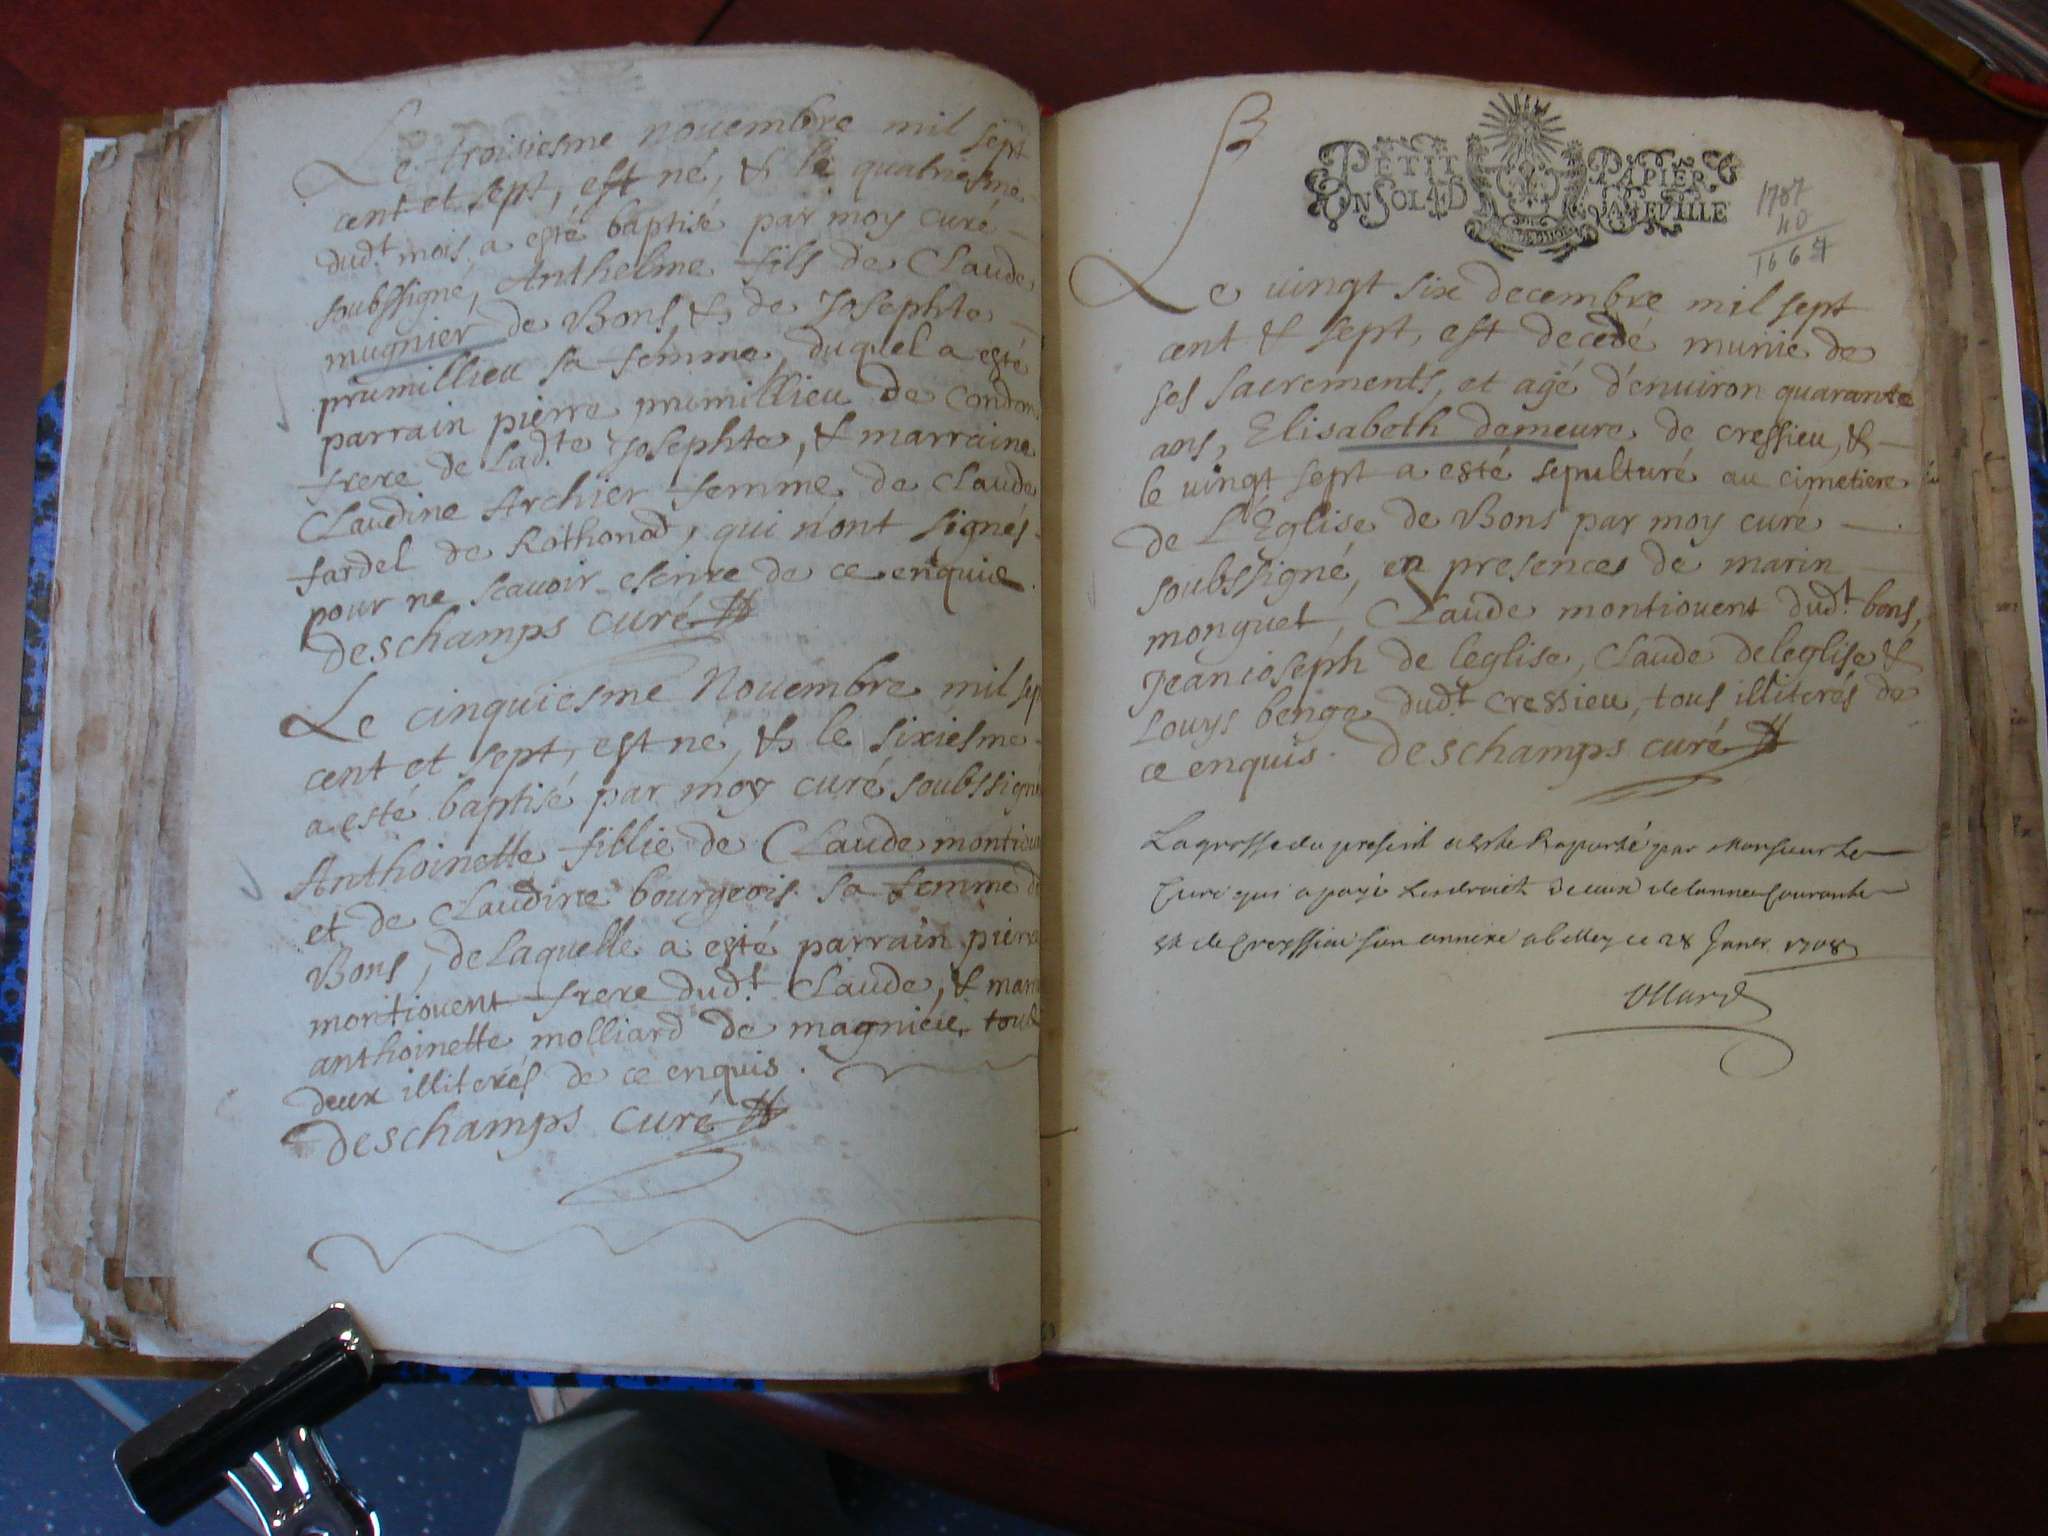 Le troisiesme nouembre mil sept
cent et sept, est né, & le quatriesme
dud.t mois a esté baptisé par moy curé
soubssigné, Anthelme fils de Claude
mugnier de Bons & de Josephte
prumillieu sa femme, duquel a esté
parrain pierre prumillieu de Condon
frere de lad.te Josephte, & marraine
Claudine Archier femme de Claude
fardel de Rothonod, qui n'ont signés
pour ne scauoir escrire de ce enquis
deschamps curé
Le cinquiesme Nouembre mil sep
cent et sept, est né, & le sixiesme
a esté baptisé par moy curé soubssigné
Anthoinette fillie de Claude montiou
et de Claudine bourgeois sa femme de
Bons, de laquelle a esté parrain pierre
montiouent frere dud.t Claude, & marr
anthoinette molliard de magnieu, tous
deux illiterés de ce enquis.
deschamps curé
PETIT PAPIER
UN SOL 4 D LA FEVILLE
1707
40
1667
Le uingt six decembre mil sept
cent & sept, est decedé munie de
ses sacrements, et agé d'enuiron quarante
ans, Elisabeth demeure de cressieu, &
le uingt sept a esté sepulturé au cimetiere
de L'Eglise de Bons par moy curé
soubssigné, en presences de marin
monguet, Claude montiouent dud.t bons,
Jean ioseph de leglise, Claude deleglise &
Louys benge dud.t cressieu, tous illiterés de
ce enquis. deschamps curé
La grosse du present a esté Raporté par Monsieur le
Curé qui a payé Les droict de lannee Courante
et de Creyssieu son annexe a belley ce 28 Januer 1708